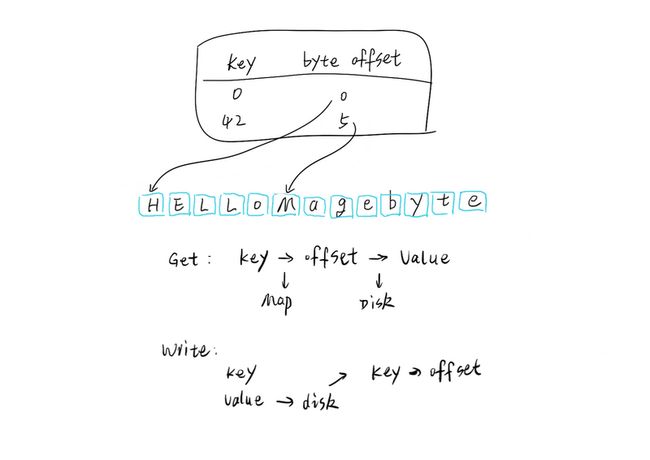 key byte offset
0 0
42 5
HELLOMagebyte
Get: key → offset → Value
Map Disk
Write:
key key → offset
Value → disk